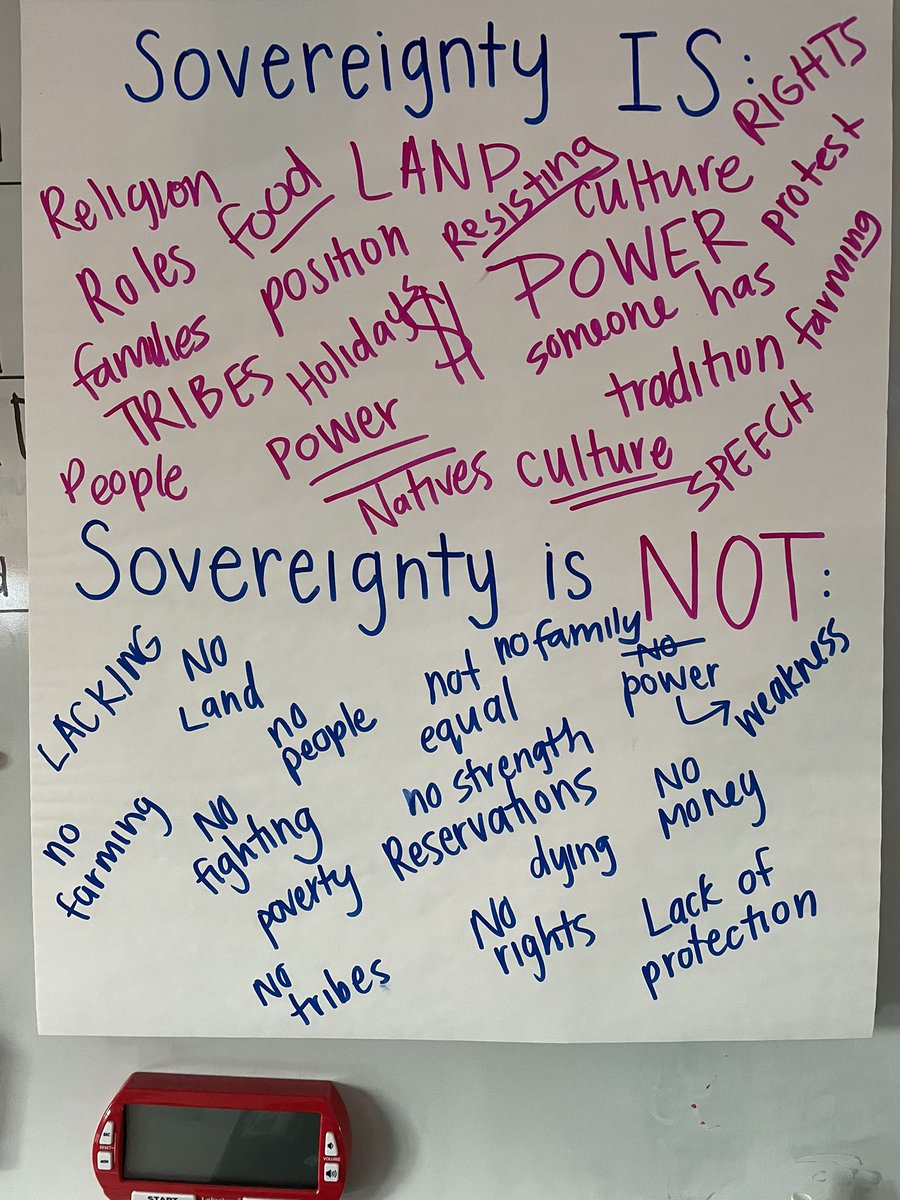 Sovereignty IS:
RIGHTS
Religion food LAND Resisting culture protest
Roles position $ POWER
families Holidays someone has farming
TRIBES tradition
People power Natives culture SPEECH
Sovereignty is NOT:
LACKING
NO
Land
no
people
not
equal
no family
NO
power
weakness
no
farming
NO
fighting
no strength
Reservations
NO
Money
poverty
dying
NO
rights
Lack of
protection
NO
tribes
SEC
RESET
MIN
VOLUME
START